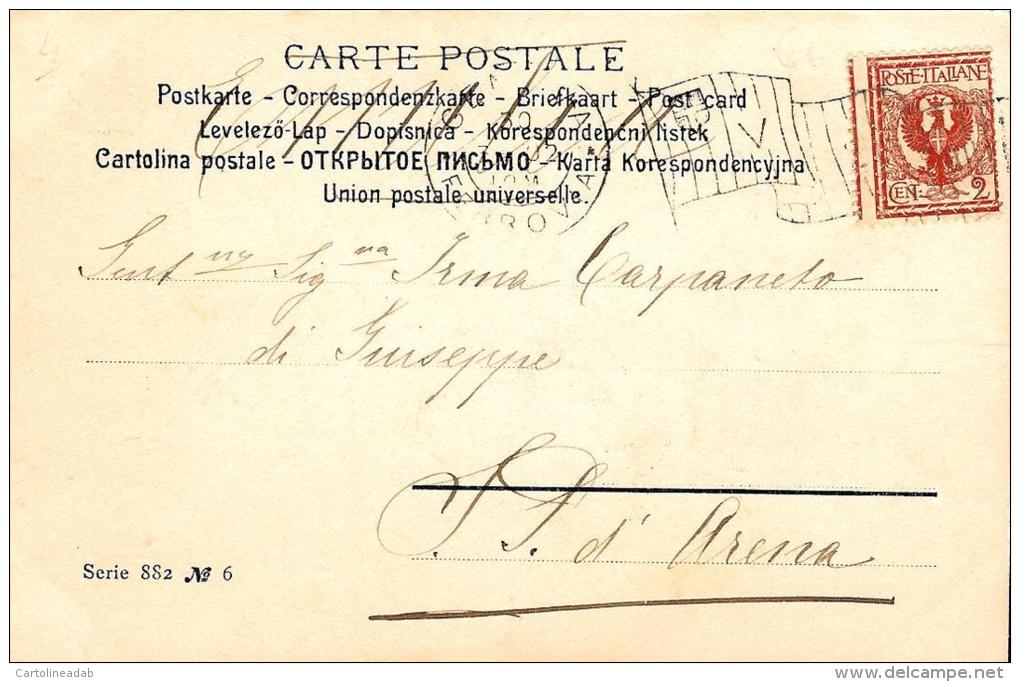 CARTE POSTALE
Postkarte - Correspondenzkarte - Briefkaart - Post card
Levelező-Lap - Dopisnica - Korespondenční listek
Cartolina postale - ОТКРЫТОЕ ПИСЬМО - Karta Korespondencyjna
Union postale universelle.
POSTE·ITALIANE
CEN. 2
Gent ma Sig na Irma Carpaneto
di Giuseppe
S. P. d' Arena
Serie 882 № 6
Cartolineadab
www.delcampe.net